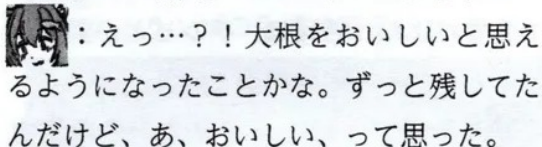 ：えっ…？！大根をおいしいと思え
るようになったことかな。ずっと残してた
んだけど、あ、おいしい、って思った。